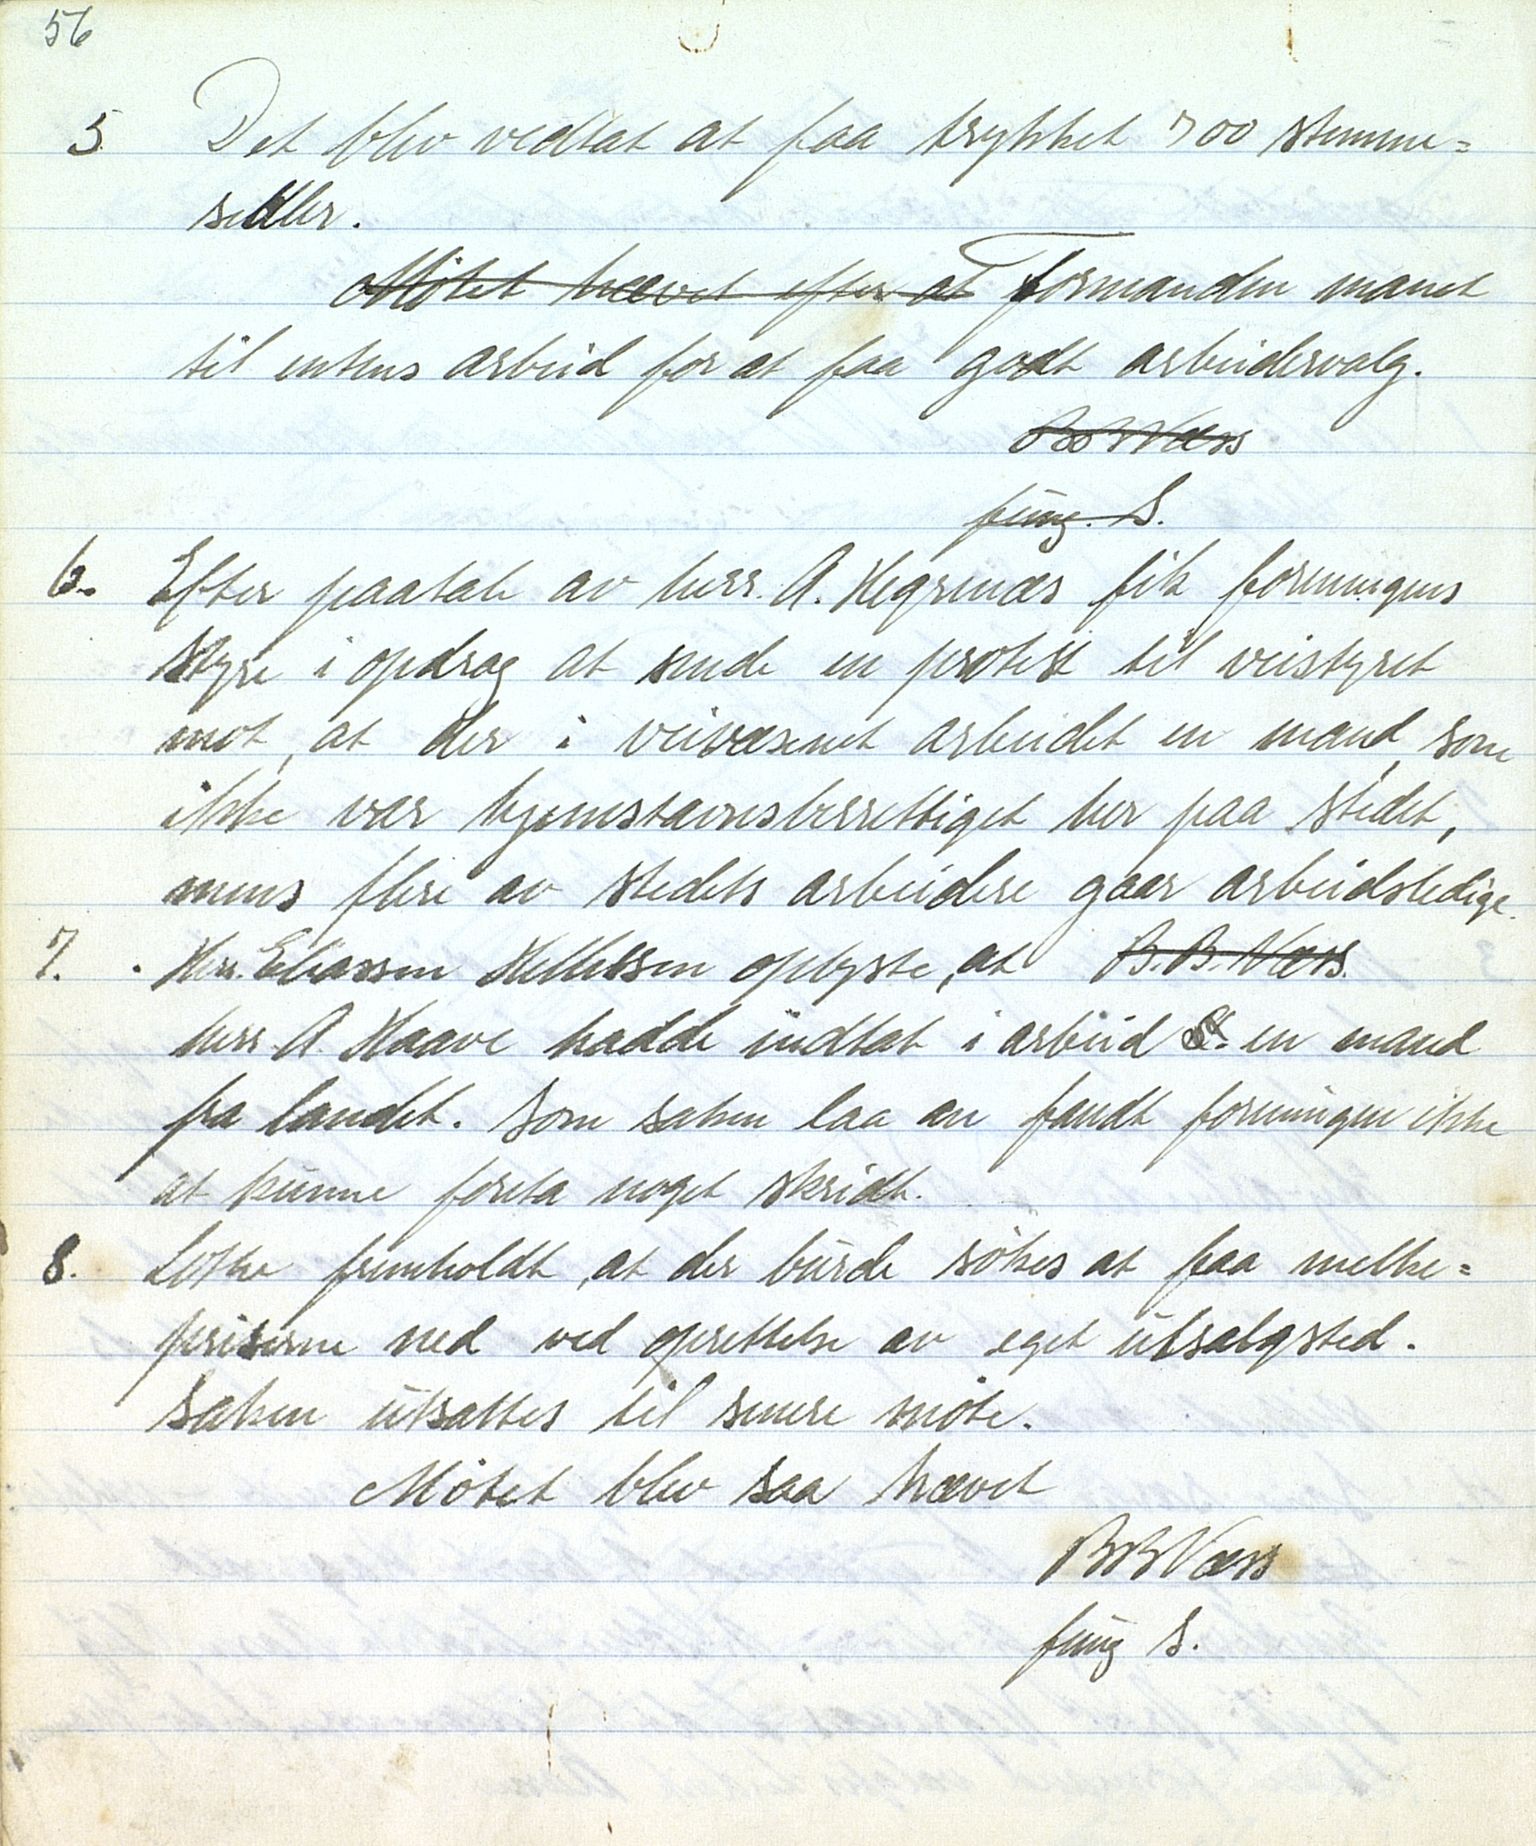 56
5 Det blev vedtat at faa trykket 700 stemme=
sedler.
Møtet hævet efter at Formanden manet
til intens arbeid for at faa godt arbeidervalg.
B B Næss
fung. S.
6. Efter paatale av herr. A. Hegrenæs fik foreningens
styre i opdrag at sende en protest til veistyret
mot, at der i veivæsenet arbeidet en mand, som
ikke var hjemstavnsberettiget her paa stedet,
mens flere av stedets arbeidere gaar arbeidsledige.
7. Herr. Eliassen Hellessen oplyste, at B. B. Næss.
herr A. Haave hadde indtat i arbeid en mand
fra landet. Som saken laa an fandt foreningen ikke
at kunne foreta noget skridt.
8. Lotke fremholdt, at der burde søkes at faa melke=
priserne ned ved oprettelse av eget utsalgsted.
Saken utsattes til senere møte.
Møtet blev saa hævet
B B Næss
fung S.